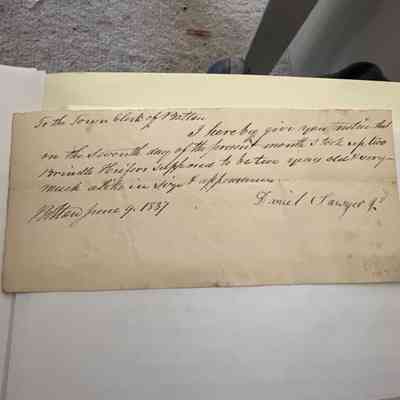 To the Town Clerk of Bolton
I hereby give you notice that
on the seventh day of the present month I took up two
Brindle Heifers supposed to be two years old & very
much alike in size & appearance
Bolton June 9. 1837 Daniel Sawyer Jr